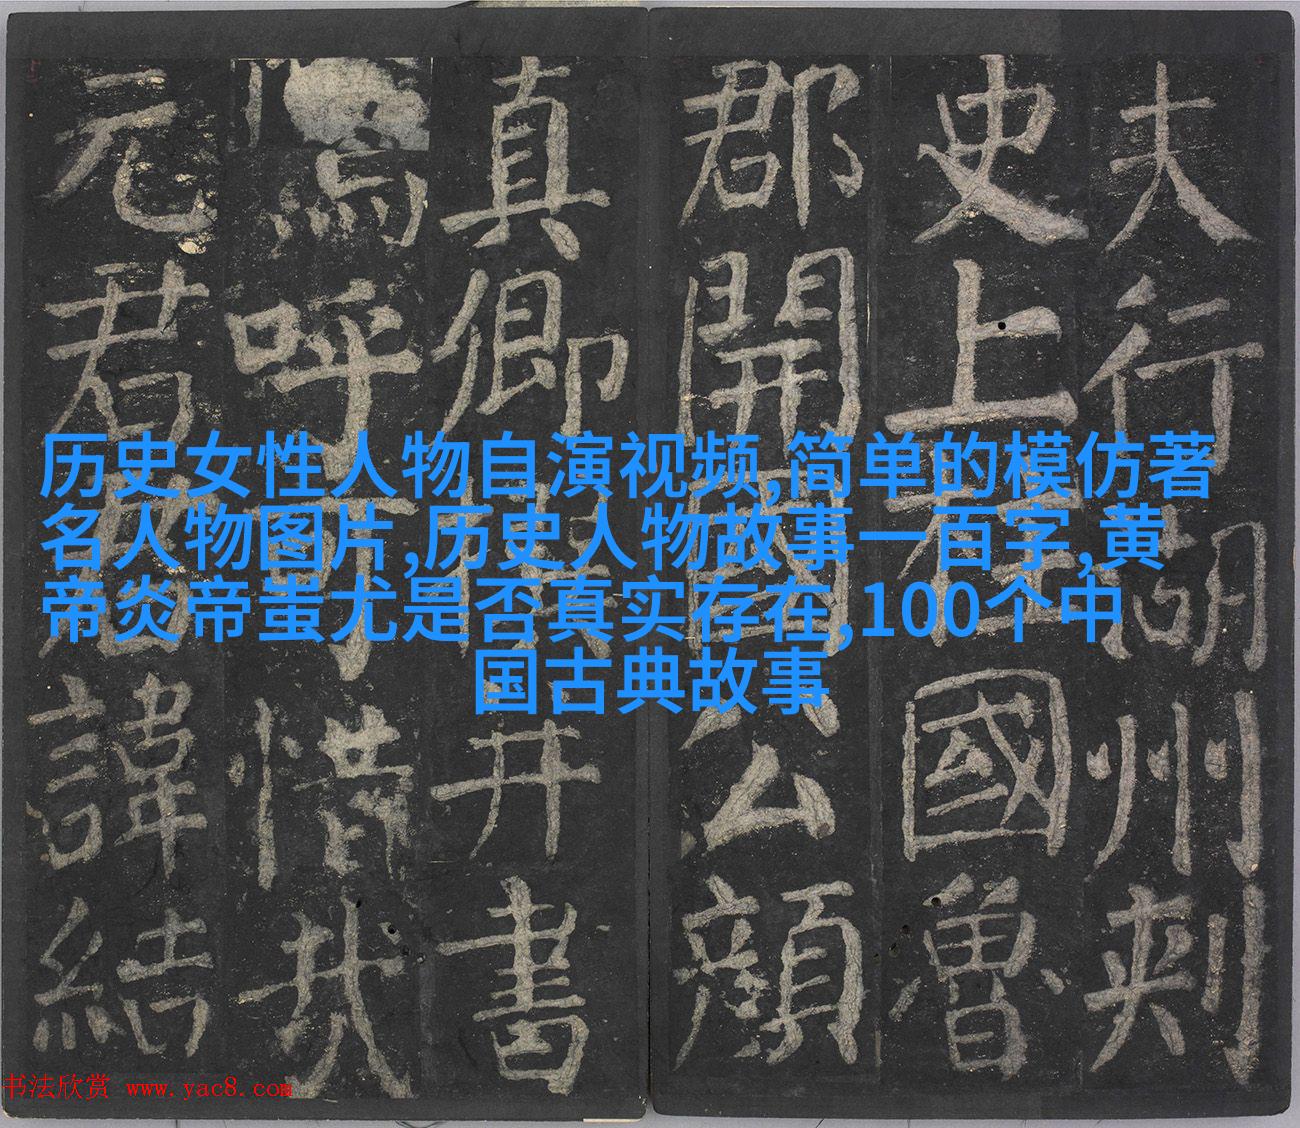 夫行湖州刾
史上柱國魯
郡開國公顏
真卿撰并書
嗚呼可惜哉
元君諱結
历史女性人物自演视频,简单的模仿著
名人物图片,历史人物故事一百字,黄
帝炎帝蚩尤是否真实存在,100个中
国古典故事
书法欣赏 www.yac8.com